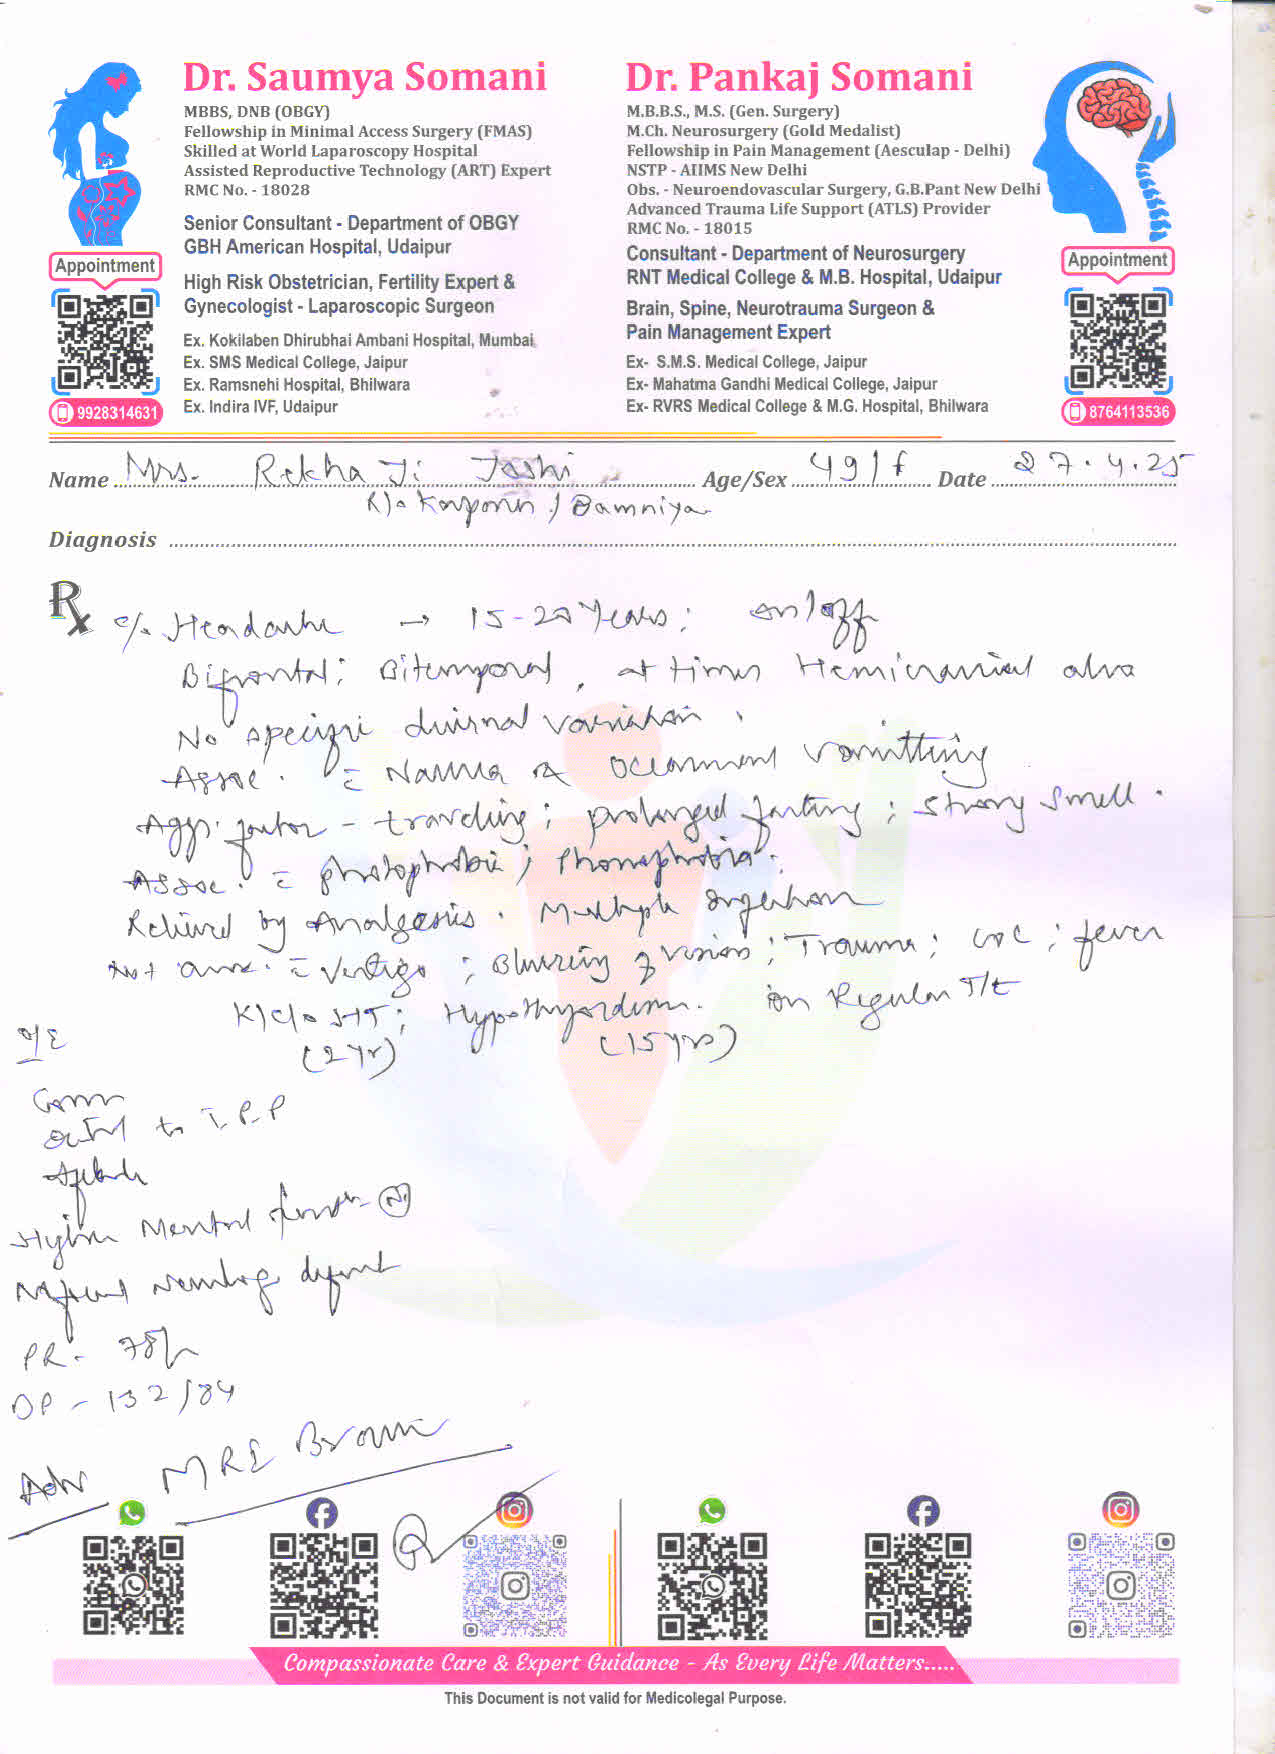 Dr. Saumya Somani
MBBS, DNB (OBGY)
Fellowship in Minimal Access Surgery (FMAS)
Skilled at World Laparoscopy Hospital
Assisted Reproductive Technology (ART) Expert
RMC No. - 18028
Senior Consultant - Department of OBGY
GBH American Hospital, Udaipur
High Risk Obstetrician, Fertility Expert &
Gynecologist - Laparoscopic Surgeon
Ex. Kokilaben Dhirubhai Ambani Hospital, Mumbai
Ex. SMS Medical College, Jaipur
Ex. Ramsnehi Hospital, Bhilwara
Ex. Indira IVF, Udaipur
Appointment
9928314631
Dr. Pankaj Somani
M.B.B.S., M.S. (Gen. Surgery)
M.Ch. Neurosurgery (Gold Medalist)
Fellowship in Pain Management (Aesculap - Delhi)
NSTP - AIIMS New Delhi
Obs. - Neuroendovascular Surgery, G.B.Pant New Delhi
Advanced Trauma Life Support (ATLS) Provider
RMC No. - 18015
Consultant - Department of Neurosurgery
RNT Medical College & M.B. Hospital, Udaipur
Brain, Spine, Neurotrauma Surgeon &
Pain Management Expert
Ex- S.M.S. Medical College, Jaipur
Ex- Mahatma Gandhi Medical College, Jaipur
Ex- RVRS Medical College & M.G. Hospital, Bhilwara
Appointment
8764113536
Name Mrs. Rekha Ji Joshi Age/Sex 49/f Date 27.4.25
R/o / Bamniya
Diagnosis
Rx c/o Headache → 15-20 Years; on/off
Bifrontal; Bitemporal, at times Hemicranial also
No specific diurnal variation.
Assoc. c Nausea & occasional vomitting
Agg. factor - traveling; prolonged fasting; strong smell.
Assoc. c photophobia; Phonophobia.
Relieved by Analgesics. Multiple ingestion
Not assoc. c Vertigo; Blurring of vision; Trauma; LOC; fever
K/c/o HT; Hypothyroidism. on Regular T/t
(2 yr) (15 yrs)
O/E
Conn
to T.P.P
Higher Mental funct- (N)
No focal neurolog deficit
PR - 78/
BP - 132/84
Adv MRI Brain
Compassionate Care & Expert Guidance - As Every Life Matters.....
This Document is not valid for Medicolegal Purpose.